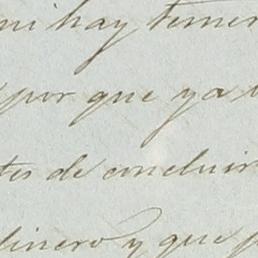 ni hay temer
por que ya
tes de concluir
dinero y que p